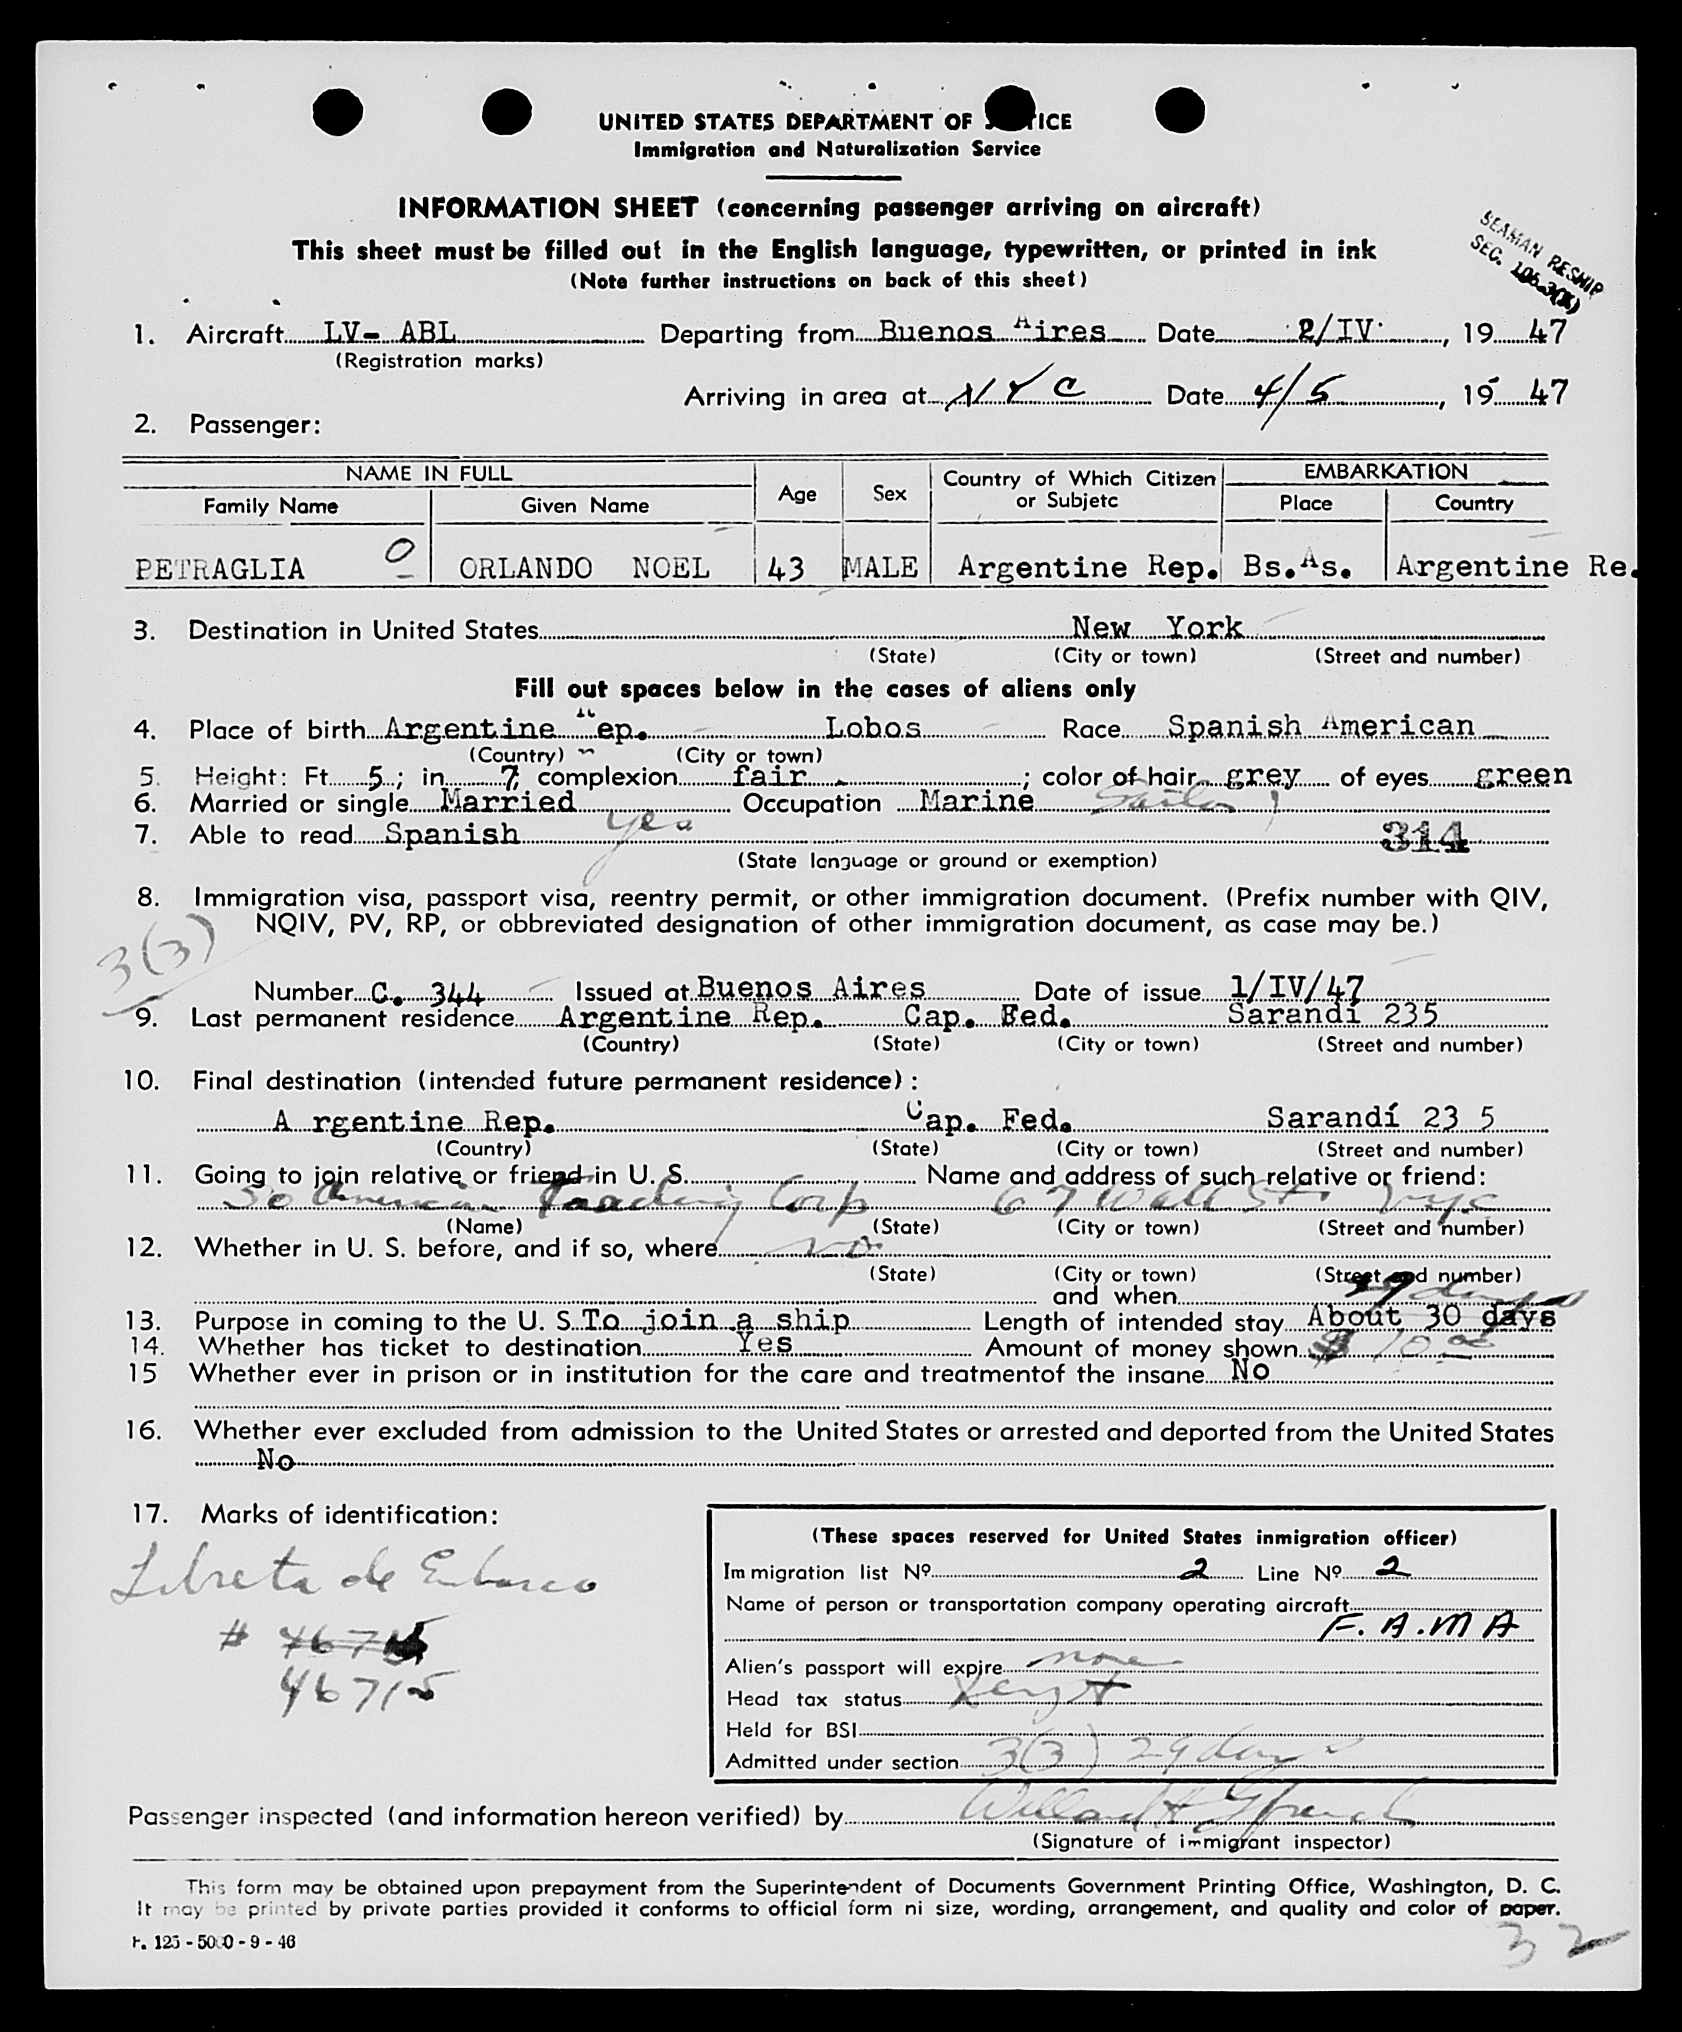 UNITED STATES DEPARTMENT OF J TICE
Immigration and Naturalization Service
INFORMATION SHEET (concerning passenger arriving on aircraft)
This sheet must be filled out in the English language, typewritten, or printed in ink
(Note further instructions on back of this sheet)
SEAMAN RESHIP
SEC. 106.3(X)
1. Aircraft LV- ABL Departing from Buenos Aires Date 2/IV , 19 47
(Registration marks)
Arriving in area at NYC Date 4/5 , 19 47
2. Passenger:
NAME IN FULL Age Sex Country of Which Citizen or Subjetc EMBARKATION
Family Name Given Name Place Country
PETRAGLIA O ORLANDO NOEL 43 MALE Argentine Rep. Bs.As. Argentine Re.
3. Destination in United States New York
(State) (City or town) (Street and number)
Fill out spaces below in the cases of aliens only
4. Place of birth Argentine Rep. Lobos Race Spanish American
(Country) (City or town)
5. Height: Ft. 5 ; in. 7, complexion fair ; color of hair grey of eyes green
6. Married or single Married Occupation Marine Sailor
7. Able to read Spanish yes 314
(State language or ground or exemption)
8. Immigration visa, passport visa, reentry permit, or other immigration document. (Prefix number with QIV,
NQIV, PV, RP, or obbreviated designation of other immigration document, as case may be.)
3(3)
Number C. 344 Issued at Buenos Aires Date of issue 1/IV/47
9. Last permanent residence Argentine Rep. Cap. Fed. Sarandí 235
(Country) (State) (City or town) (Street and number)
10. Final destination (intended future permanent residence):
A rgentine Rep. Cap. Fed. Sarandí 23 5
(Country) (State) (City or town) (Street and number)
11. Going to join relative or friend in U. S. Name and address of such relative or friend:
So American Trading Corp 67 Wall St NYC
(Name) (State) (City or town) (Street and number)
12. Whether in U. S. before, and if so, where no
(State) (City or town) (Street and number)
and when 29 days
13. Purpose in coming to the U. S. To join a ship Length of intended stay About 30 days
14. Whether has ticket to destination Yes Amount of money shown $ 10.00
15 Whether ever in prison or in institution for the care and treatmentof the insane No
16. Whether ever excluded from admission to the United States or arrested and deported from the United States
No
17. Marks of identification:
Libreta de Embarco
# 46715
46715
(These spaces reserved for United States inmigration officer)
Immigration list Nº 2 Line Nº 2
Name of person or transportation company operating aircraft
F. A. M A
Alien's passport will expire none
Head tax status Xempt
Held for BSI
Admitted under section 3(3) 29 days
Passenger inspected (and information hereon verified) by Willard H
(Signature of immigrant inspector)
This form may be obtained upon prepayment from the Superintendent of Documents Government Printing Office, Washington, D. C.
It may be printed by private parties provided it conforms to official form ni size, wording, arrangement, and quality and color of paper.
F. 125 - 5000 - 9 - 46
32